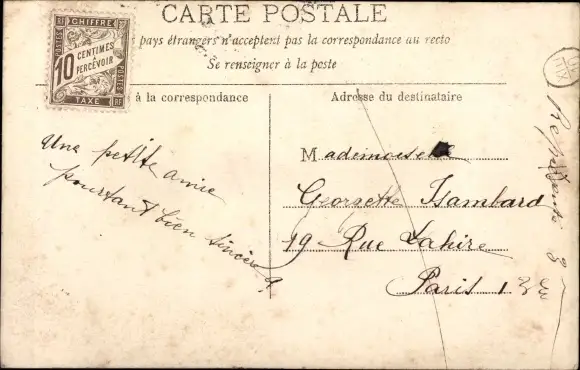 CARTE POSTALE
pays étrangers n'acceptent pas la correspondance au recto
Se renseigner à la poste
CHIFFRE
POSTES
10 CENTIMES
À PERCEVOIR
TAXE
RF
à la correspondance
Adresse du destinataire
Une petite amie
pourtant bien sincère
Mademoiselle
Georgette Isambard
19 Rue Lahire
Paris 13